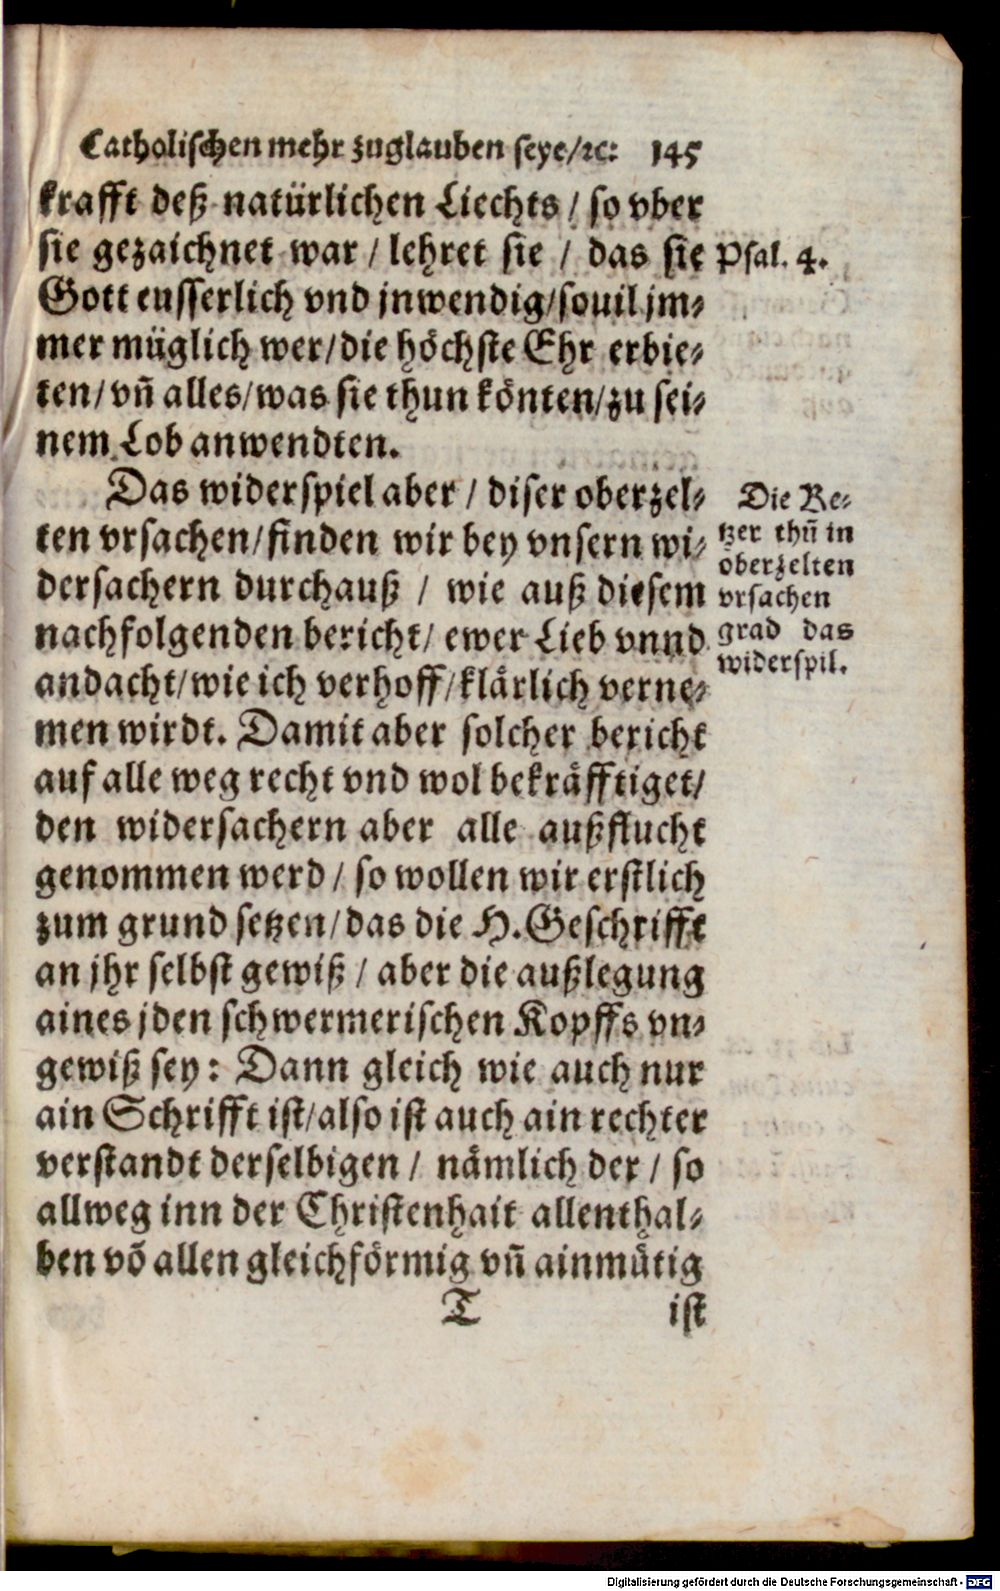 Catholischen mehr zuglauben seye/ꝛc: 145
krafft deß natürlichen Liechts / so vber
sie gezaichnet war / lehret sie / das sie
Psal. 4.
Gott eusserlich vnd jnwendig/souil jm⸗
mer müglich wer/die höchste Ehr erbie⸗
ten/ vñ alles/was sie thun könten/zu sei⸗
nem Lob anwendten.
Das widerspiel aber / diser oberzel⸗
ten vrsachen/finden wir bey vnsern wi⸗
dersachern durchauß / wie auß diesem
nachfolgenden bericht/ ewer Lieb vnnd
andacht/wie ich verhoff/klärlich verne⸗
men wirdt. Damit aber solcher bericht
auf alle weg recht vnd wol bekräfftiget/
den widersachern aber alle außflucht
genommen werd / so wollen wir erstlich
zum grund setzen/das die H. Geschrifft
an jhr selbst gewiß / aber die außlegung
aines jden schwermerischen Kopffs vn⸗
gewiß sey: Dann gleich wie auch nur
ain Schrifft ist/also ist auch ain rechter
verstandt derselbigen / nämlich der / so
allweg inn der Christenhait allenthal⸗
ben võ allen gleichförmig vñ ainmütig
T ist
Die Ke⸗
tzer thũ in
oberzelten
vrsachen
grad das
widerspil.
Digitalisierung gefördert durch die Deutsche Forschungsgemeinschaft - DFG